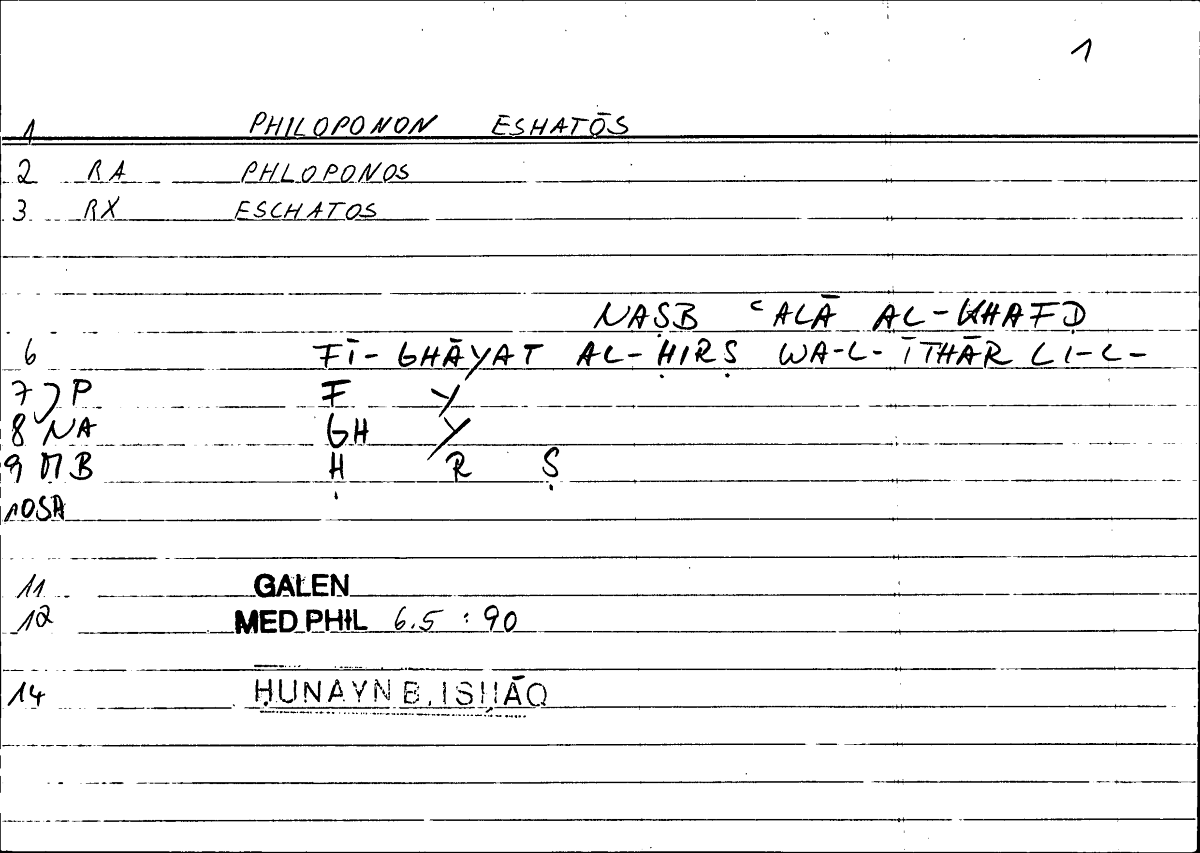 1
1 PHILOPONON ESHATŌS
2 RA PHLOPONOS
3 RX ESCHATOS
NAṢB ʿALĀ AL-KHAFḌ
6 FĪ-GHĀYAT AL-ḤIRṢ WA-L-ĪTHĀR LI-L-
7 P F Y
8 NA GH Y
9 MB Ḥ R Ṣ
10SA
11 GALEN
12 MED PHIL 6.5 : 90
14 ḤUNAYN B. ISḤĀQ